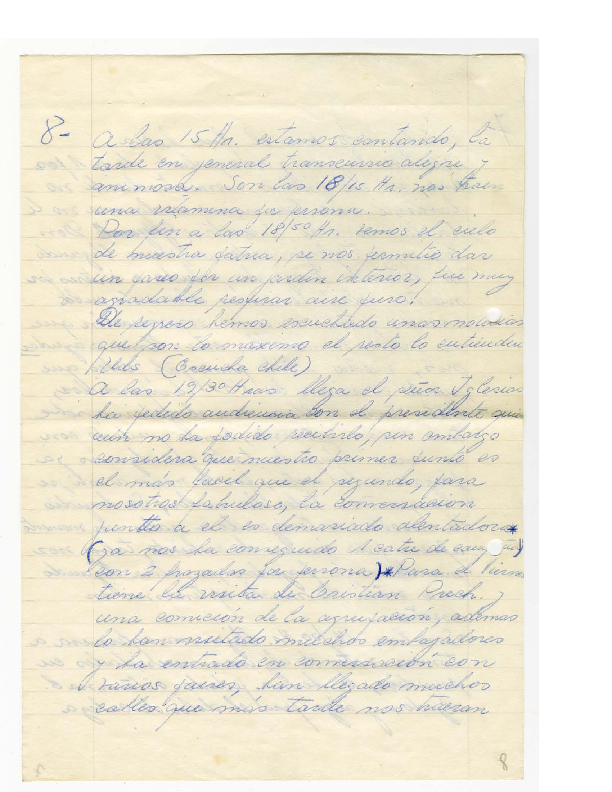 8-
A las 15 Hr. estamos cantando, la
tarde en general transcurrio alegre y
animosa. Son las 18/15 Hr. nos traen
una vitamina por persona.
Por fin a las 18/50 Hr. vemos el cielo
de nuestra patria, se nos permitio dar
un paseo por un jardin interior, fue muy
agradable respirar aire puro.
De regreso hemos escuchado unas noticias
que son lo maximo el resto lo entienden
Uds (Escucha Chile)
A las 19/30 Hras llega el señor Iglesias
ha pedido audiencia con el presidente quien
aún no ha podido recibirlo, sin embargo
considera que nuestro primer punto es
el más facil que el segundo, para
nosotros fabuloso, la conversacion
junto a el es demasiado alentadora*
(ya nos ha conseguido 1 catre de campaña
con 2 frazadas por persona)* Para el Viernes
tiene la visita de Cristian Prech. y
una comición de la agrupación, ademas
lo han visitado muchos embajadores
y ha entrado en conversación con
varios paises, han llegado muchos
cables que más tarde nos traeran
8